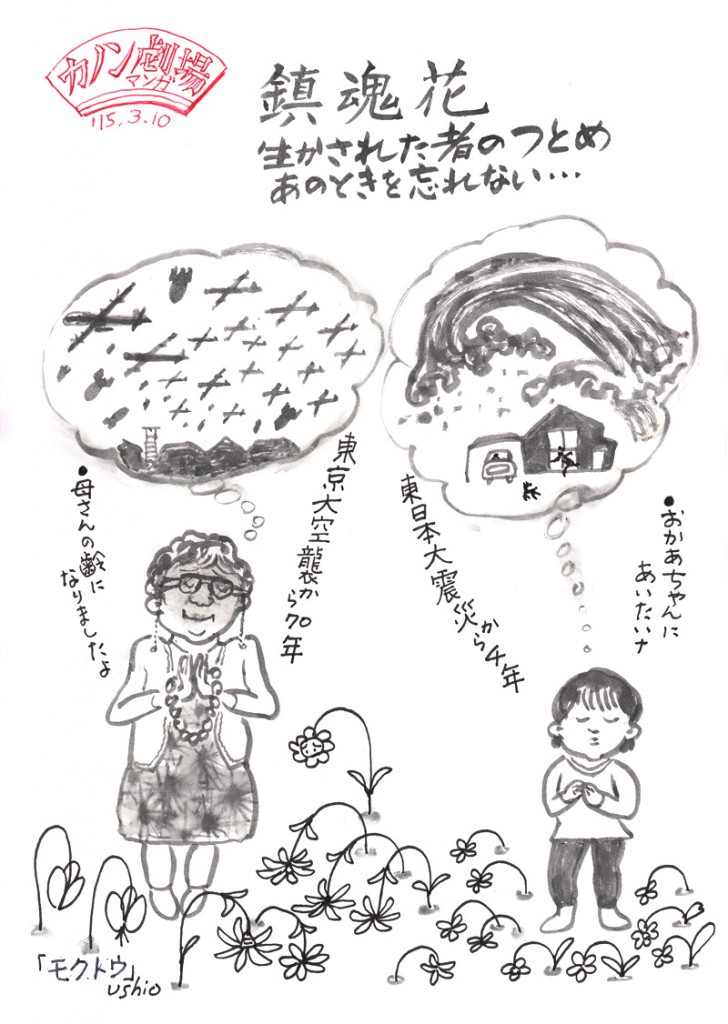 カノン劇場
マンガ
'15.3.10
鎮魂花
生かされた者のつとめ
あのときを忘れない…
東京大空襲から70年
•母さんの齢に
なりましたよ
•おかあちゃんに
あいたいナ
東日本大震災から4年
「モクトウ」
ushio